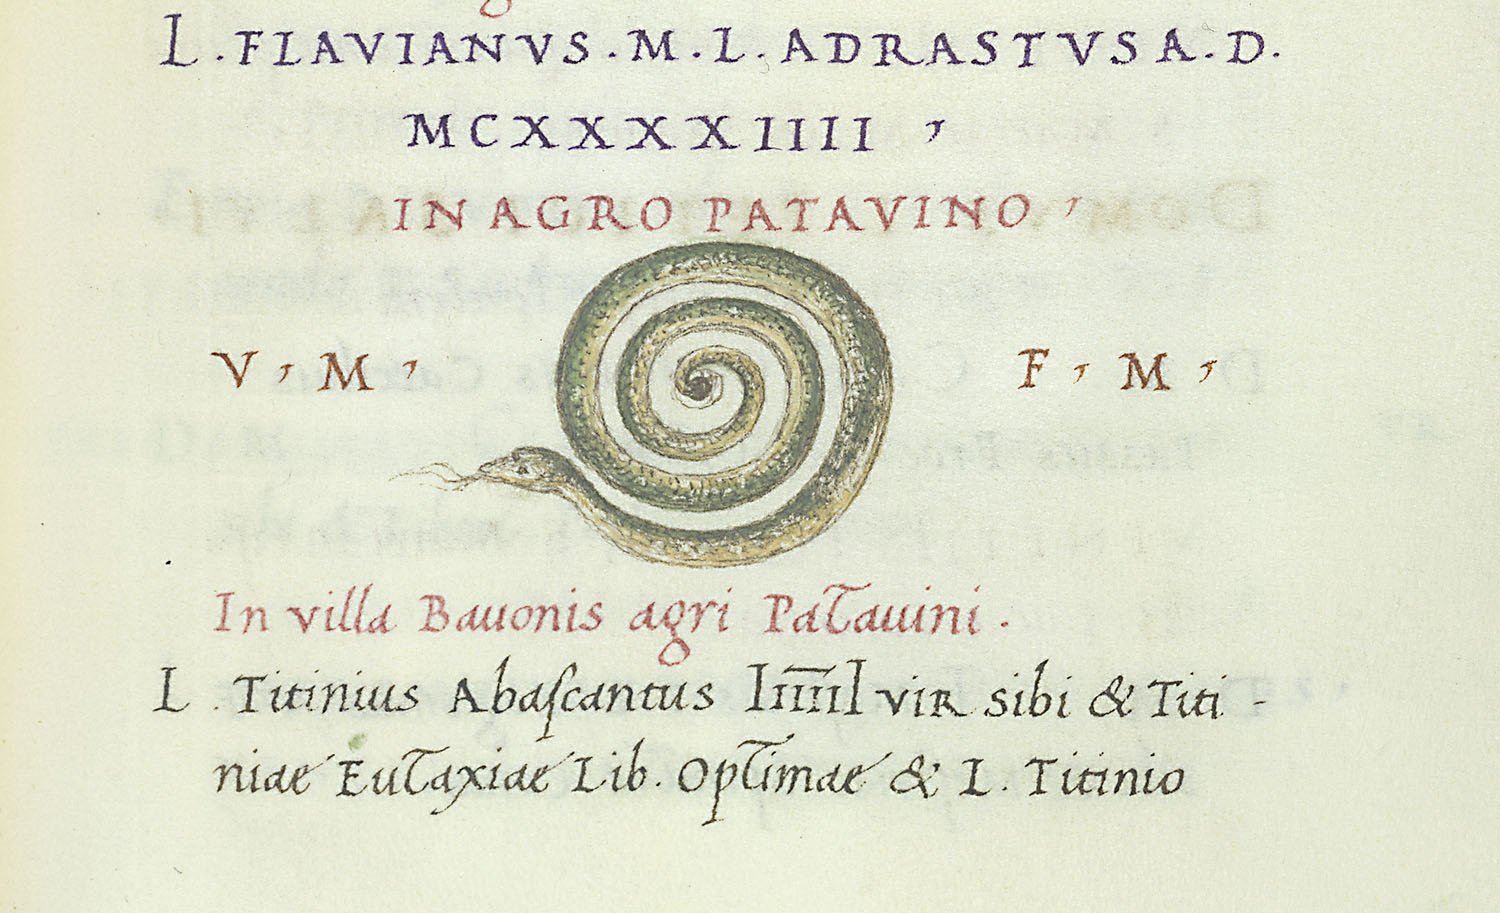 L . FLAVIANVS . M . L . ADRASTVS A . D .
MCXXXXIIII ,
IN AGRO PATAVINO ,
V , M , F , M ,
In villa Bauonis agri Patauini .
L . Titinius Abaſcantus IIIIII VIR sibi & Titi -
niae Eutaxiae Lib . Optimae & L . Titinio